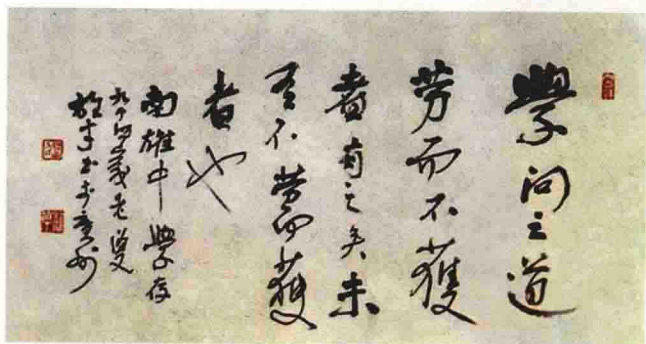 學问之道
劳而不獲
者有之矣未
有不劳而獲
者也
南雄中學存
九十四歲老叟